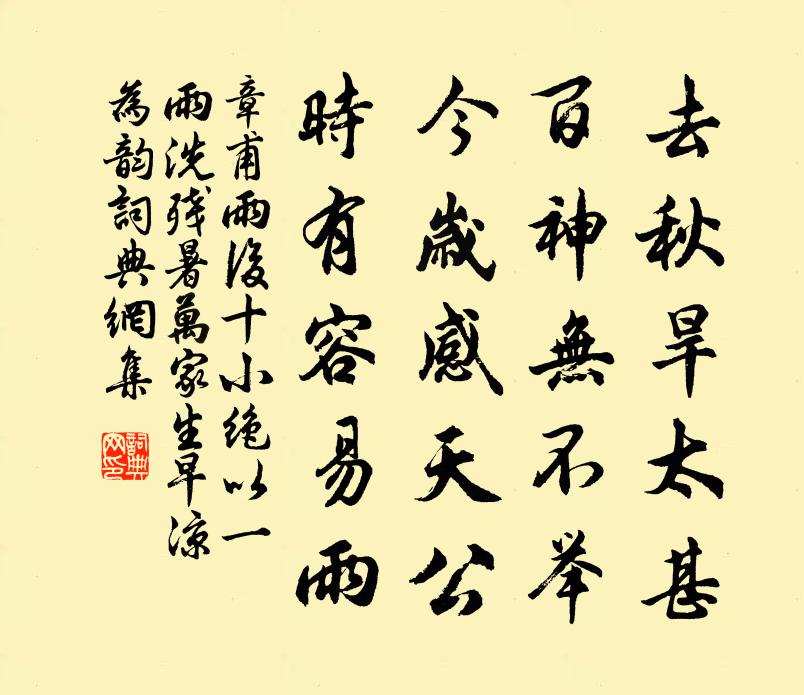 去秋旱太甚
百神無不举
今歲感天公
時有容易雨
章甫雨後十小绝以一
雨洗残暑萬家生早凉
為韵詞典網集
詞典
网印